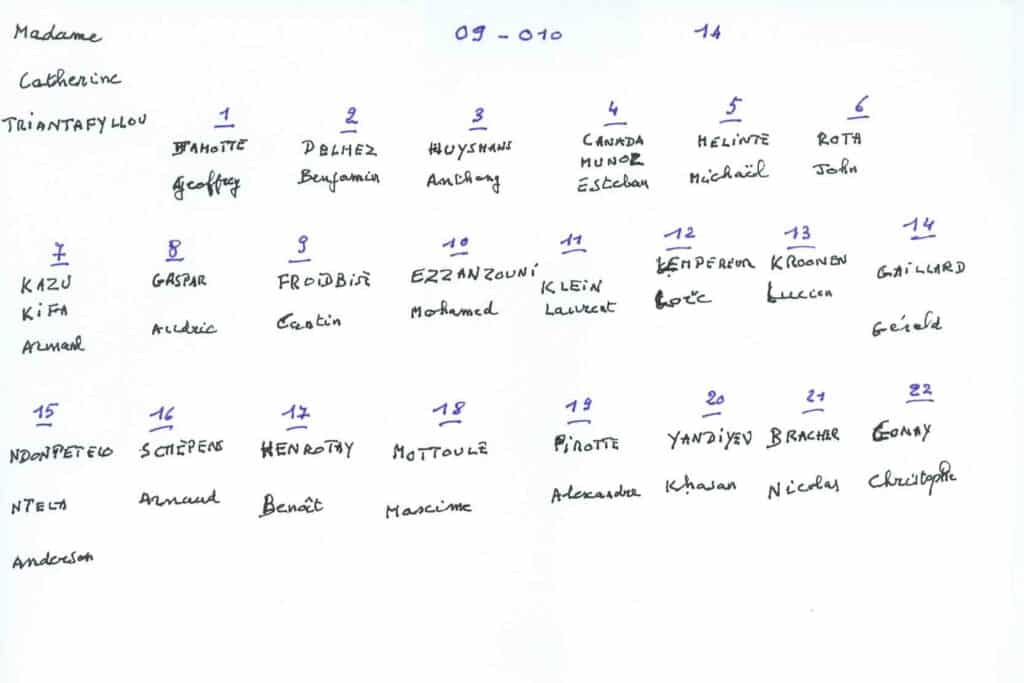 Madame
09 - 010
14
Catherine
TRIANTAFYLLOU
1 2 3 4 5 6
HAMOTTE DELMEZ HUYSMANS CANADA MELINTE ROTH
MUNOZ
Geoffrey Benjamin Anthony Esteban Michaël John
7 8 9 10 11 12 13 14
KAZU GASPAR FROIDBISE EZZANZOUNI KLEIN LEMPEREUR KROONEN GAILLARD
KIFA
Armand Alldric Mohamed Laurent Loïc Lucien Gérald
15 16 17 18 19 20 21 22
NDONPETELO SCHEPENS HENROTAY MOTTOULE PIROTTE YANDIYEV BRACHER GONAY
NTELA Arnaud Benoît Maxime Alexandre Khasan Nicolas Christophe
Anderson